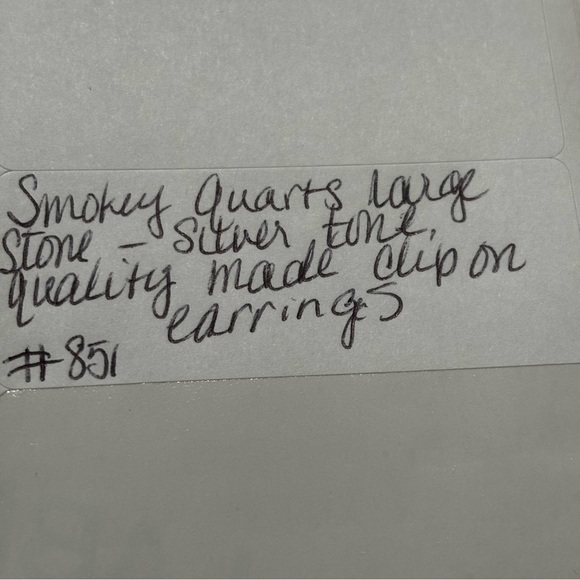 Smokey Quarts large
Stone - Silver tone,
quality made clip on
earrings
#851